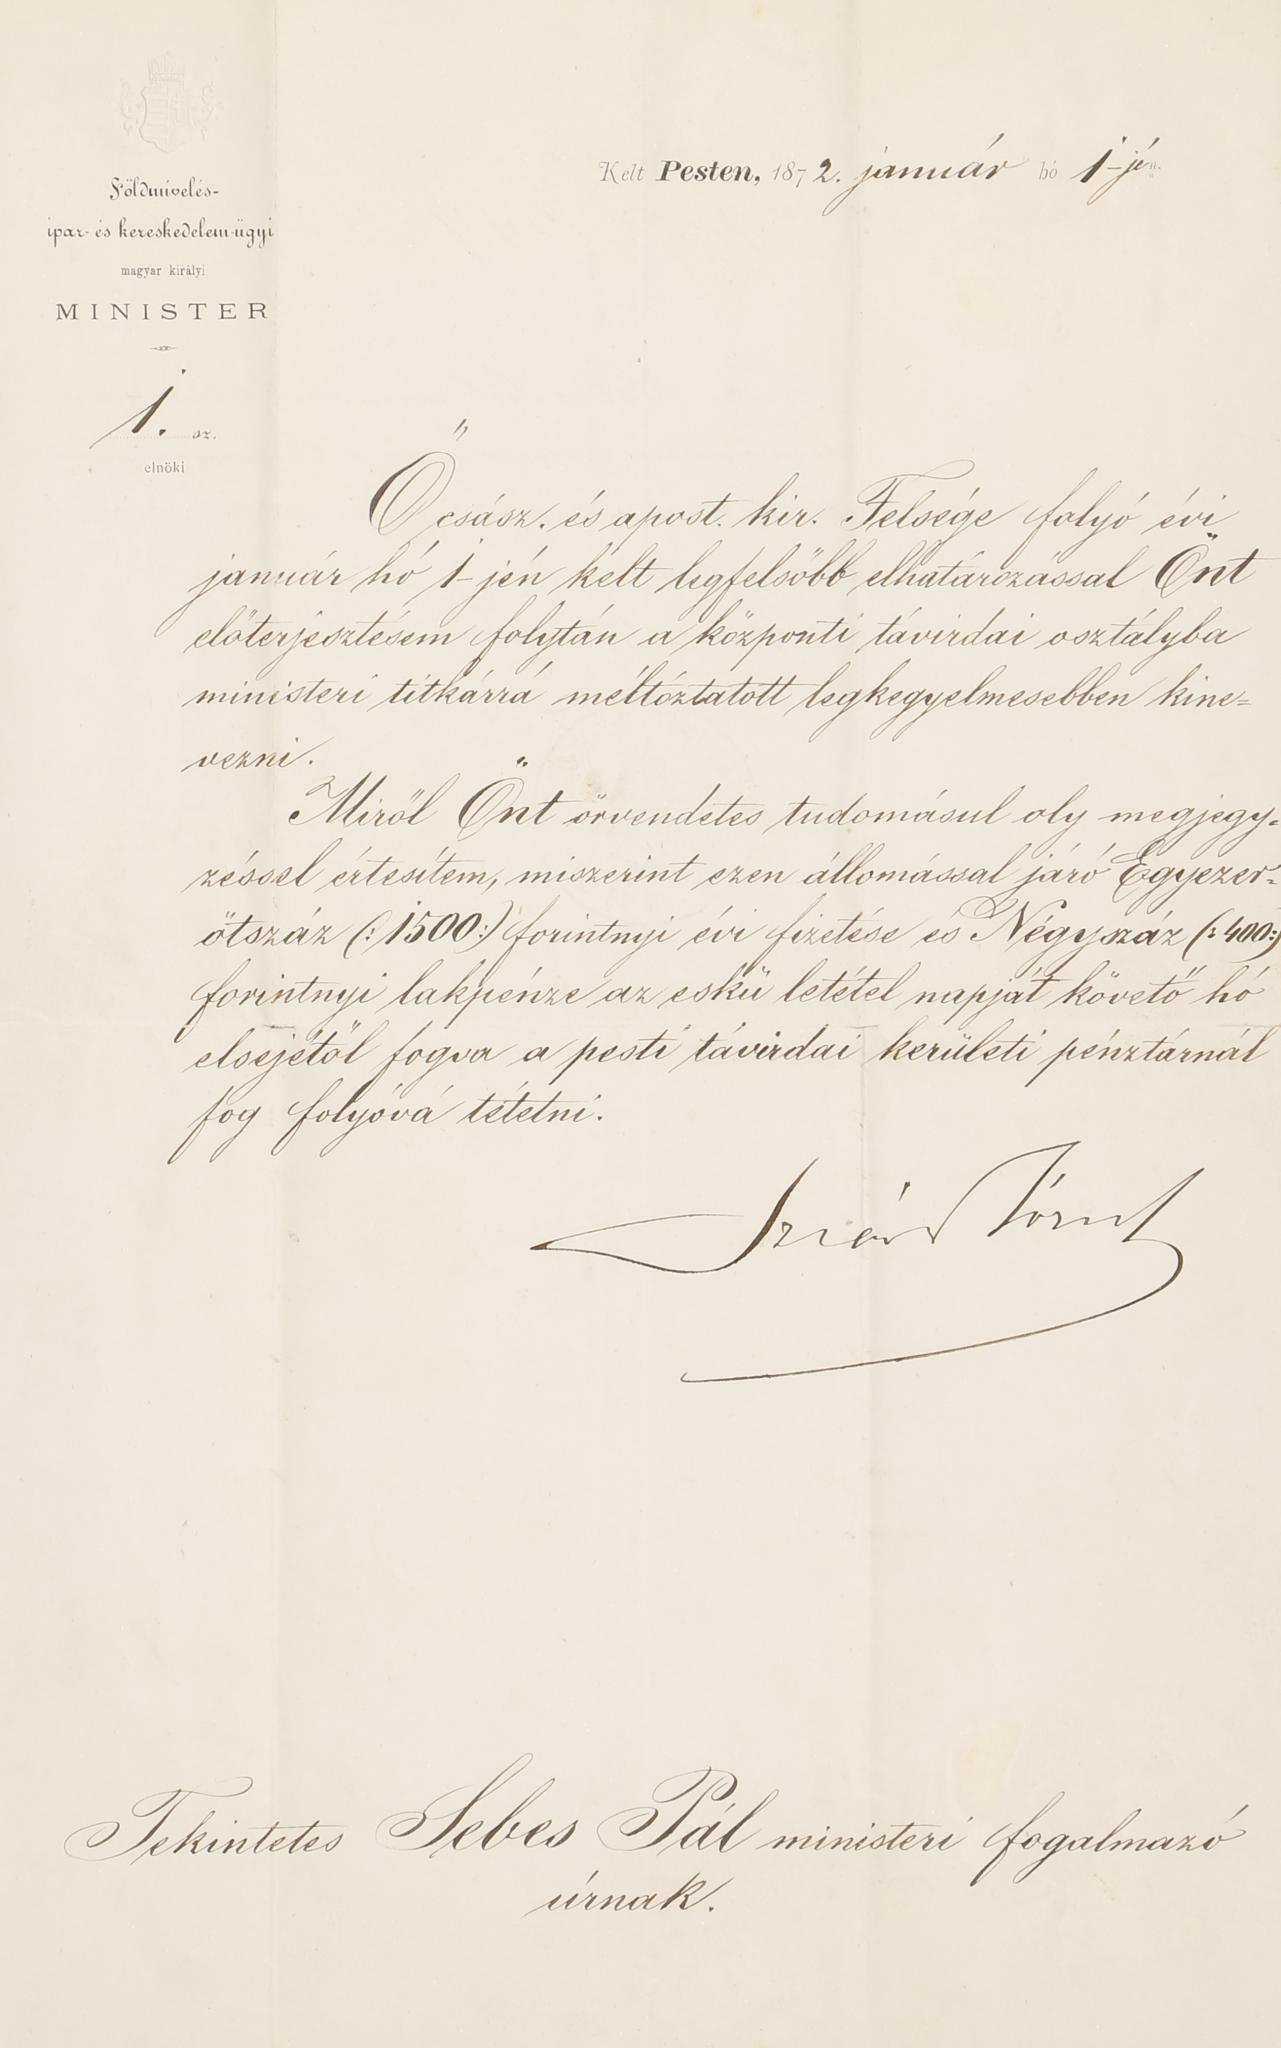 Földmívelés-
ipar- és kereskedelem-ügyi
magyar királyi
MINISTER
1. sz.
elnöki
Kelt Pesten, 1872. január hó 1-jén.
Ő csász. és apost. kir. Felsége folyó évi
január hó 1-jén kelt legfelsőbb elhatározással Önt
előterjesztésem folytán a központi távirdai osztályba
ministeri titkárrá méltóztatott legkegyelmesebben kine=
vezni.
Miről Önt örvendetes tudomásul oly megjegy=
zéssel értesítem, miszerint ezen állomással járó Egyezer=
ötszáz (:1500:) forintnyi évi fizetése és Négyszáz (:400:)
forintnyi lakpénze az eskü letétel napját követő hó
elsejétől fogva a pesti távirdai kerületi pénztárnál
fog folyóvá tétetni.
Tekintetes Sebes Pál ministeri fogalmazó
úrnak.